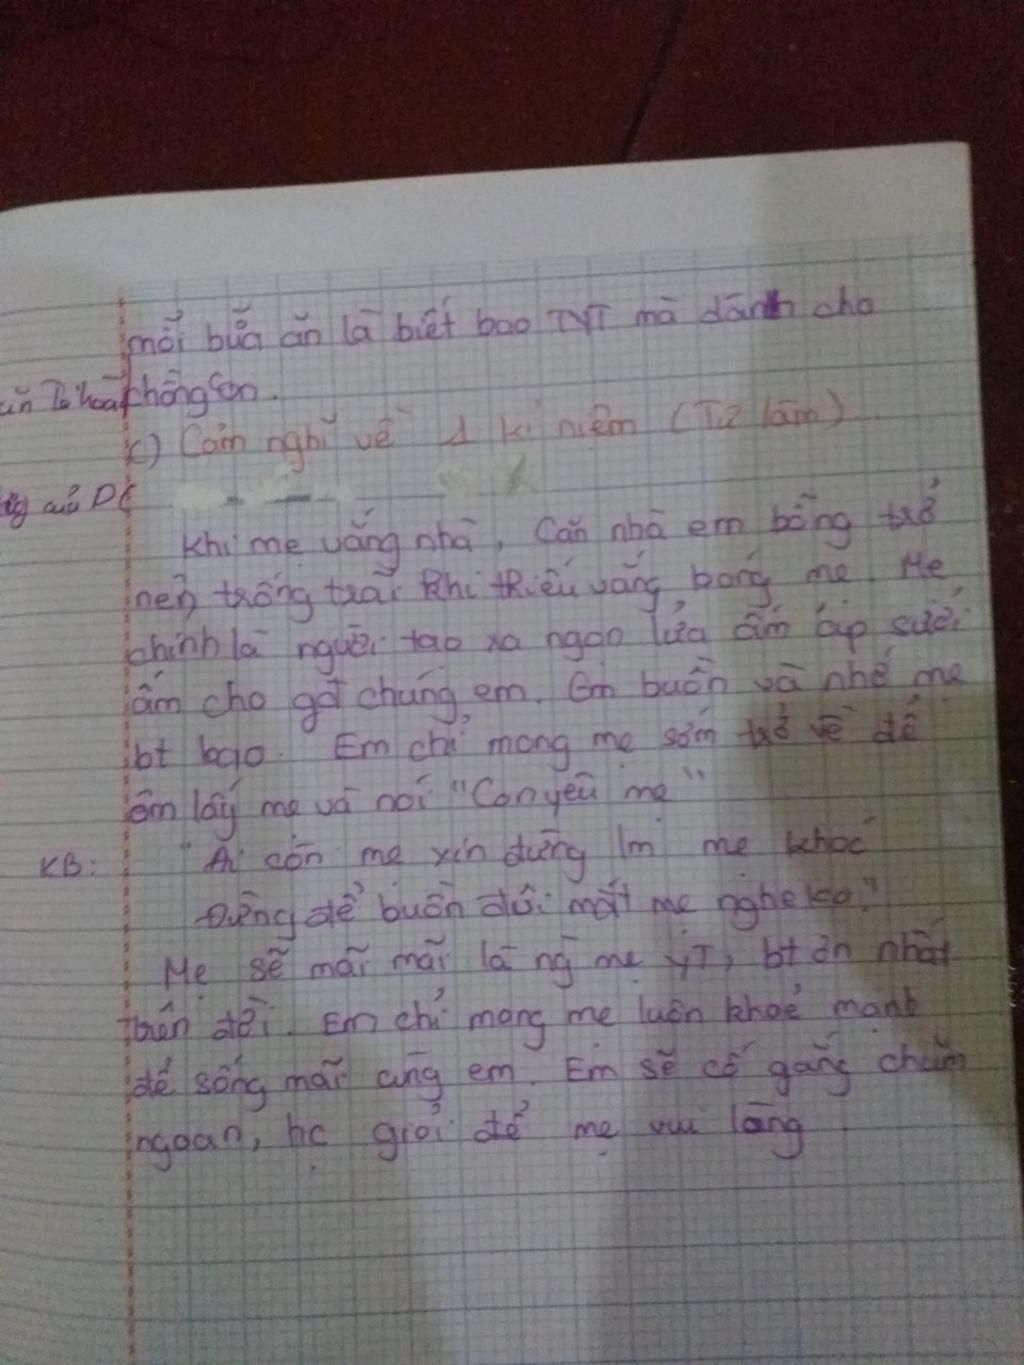 mỗi bữa ăn là biết bao TYT mà dành cho
chồng con.
c) Cảm nghĩ về 1 kỉ niệm (Tự làm)
Khi mẹ vắng nhà, Căn nhà em bỗng trở
nên trống trải khi thiếu vắng bóng mẹ. Mẹ
chính là người tạo ra ngọn lửa ấm áp sưởi
ấm cho gđ chúng em. Em buồn và nhớ mẹ
bt bao. Em chỉ mong mẹ sớm trở về để
ôm lấy mẹ và nói "Con yêu mẹ"
KB: "Ai còn mẹ xin đừng lm mẹ khóc
Đừng để buồn đôi mắt mẹ nghe ko?"
Mẹ sẽ mãi mãi là ng mẹ yT, bt ơn nhất
trên đời. Em chỉ mong mẹ luôn khoẻ mạnh
để sống mãi cùng em. Em sẽ cố gắng chăm
ngoan, hc giỏi để mẹ vui lòng